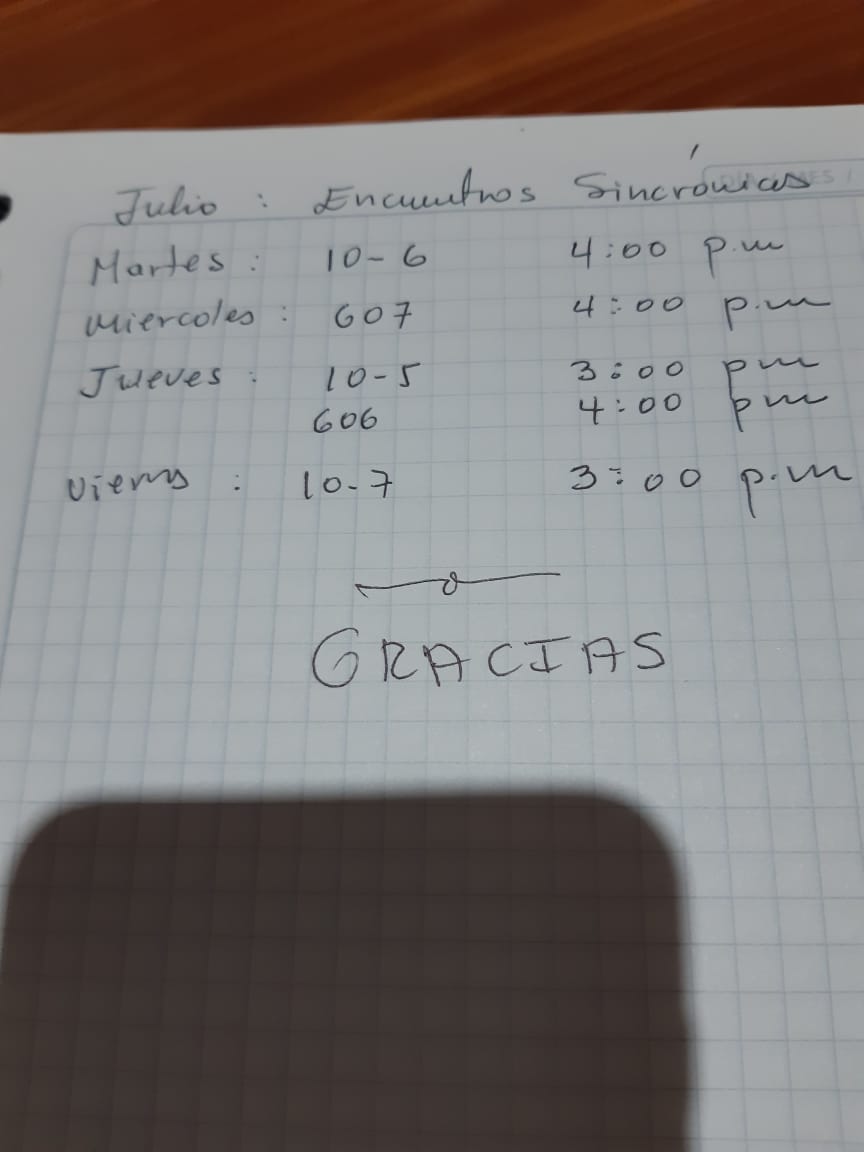 Julio : Encuentros Sincrónicos
Martes : 10-6 4:00 p.m
Miercoles : 607 4:00 p.m
Jueves : 10-5 3:00 pm
606 4:00 pm
Viernes : 10-7 3:00 p.m
GRACIAS